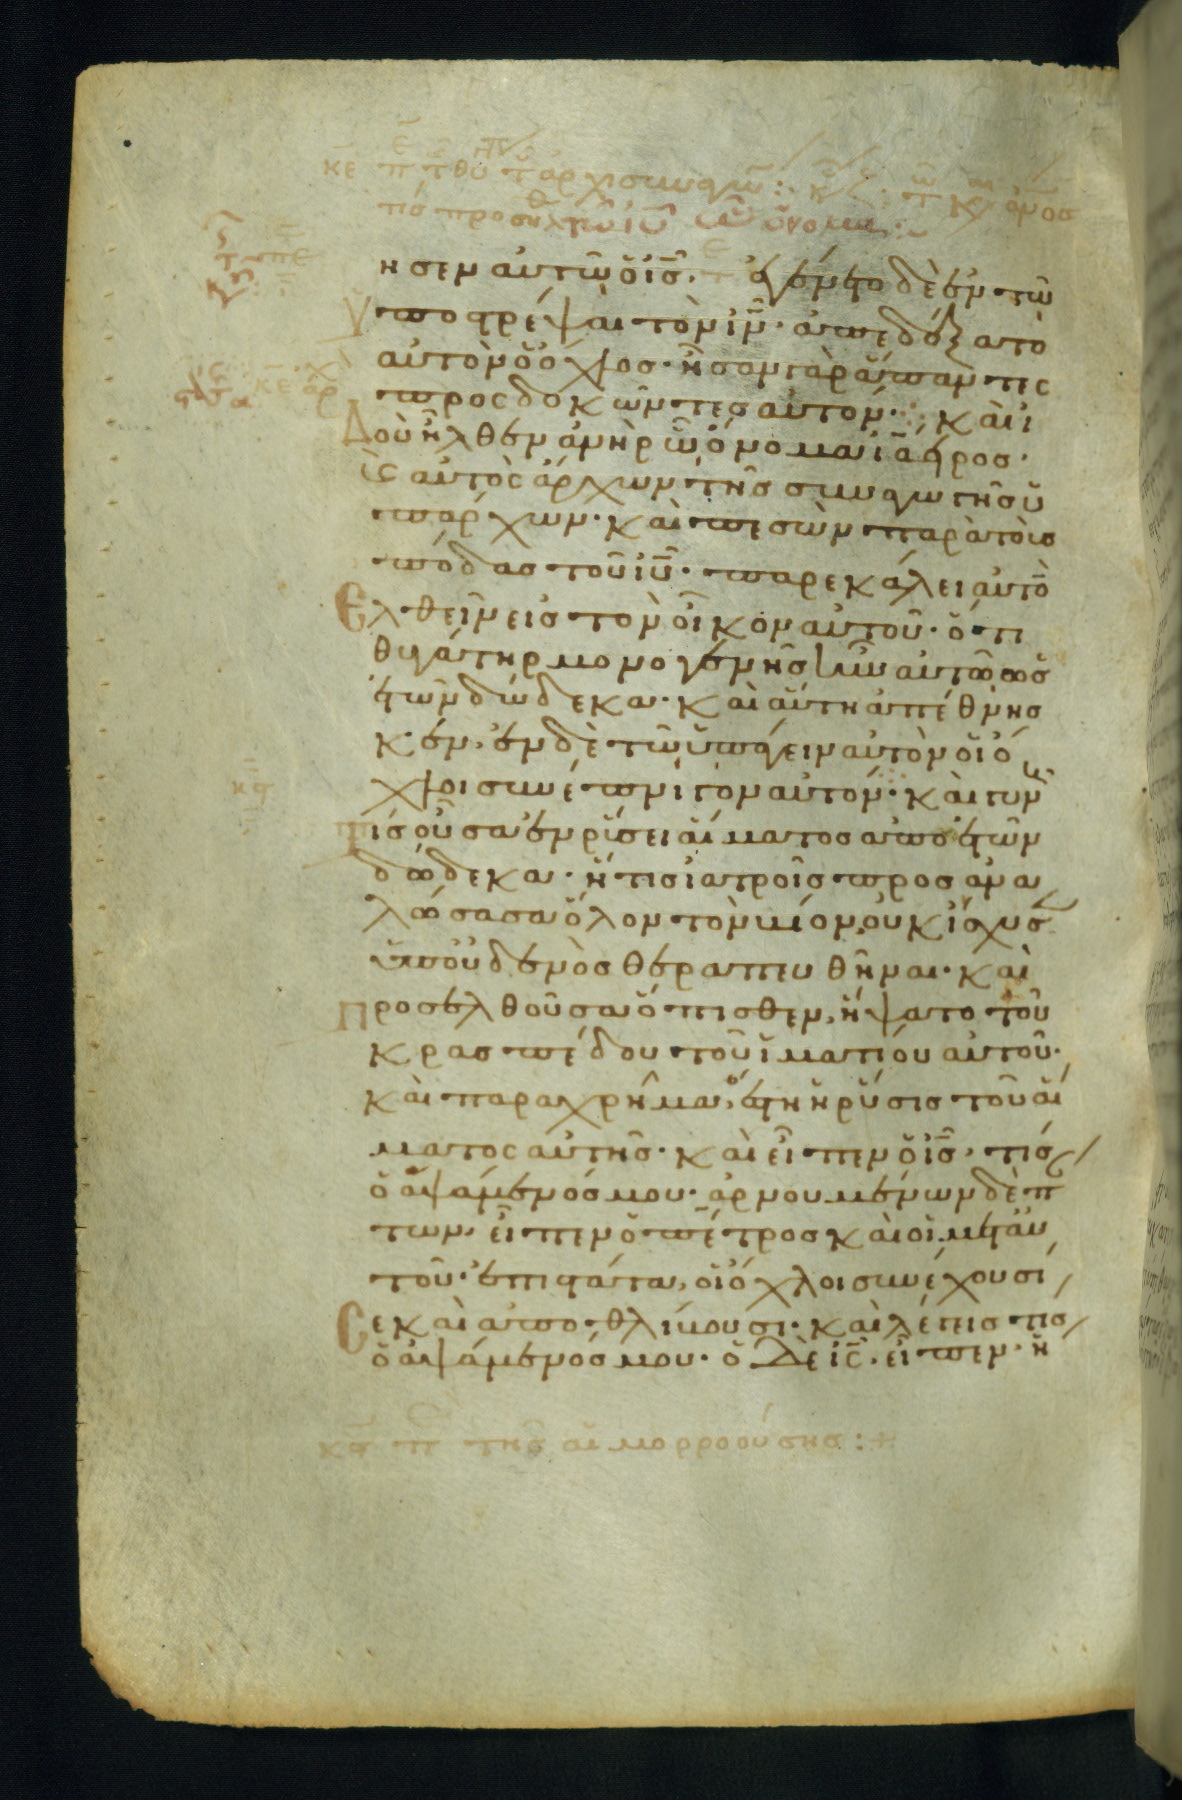 κε π τ θυ τ αρχισυναγω :
ησεν αὐτῶ ὁ ις̅. ἐγένετο δὲ ἐν τῶ
ὑποστρέψαι τὸν ιν̅. ἀπεδέξατο
αὐτὸν ὁ ὄχλος. ἦσαν γὰρ ἅπαντες
προςδοκῶντες αὐτόν. καὶ ἰ
Δοὺ ἦλθεν ἀνὴρ ὧ ὄνομα ἰάειρος.
κ(αὶ) αὐτὸς ἄρχων τῆς συναγωγῆς ὑ
πάρχων. καὶ πεσὼν παρὰ τοὺς
πόδας τοῦ ιυ̅. παρεκάλει αὐτὸ
Ελθεῖν εἰς τὸν οἶκον αὐτοῦ. ὅτι
θυγάτηρ μονογενῆς ἦν αὐτῶ ὡς
ἐτῶν δώδεκα. καὶ αὕτη ἀπέθνησ
κεν. ἐν δὲ τῶ ὑπάγειν αὐτὸν οἱ ὄ
χλοι συνέπνιγον αὐτόν. καὶ γυνὴ
τίς οὖσα ἐν ῥύσει αἵματος ἀπὸ ἐτῶν
δώδεκα. ἥτις ἰατροῖς προσανα
λώσασα ὅλον τὸν βίον οὐκ ἴσχυσ
ὑπ οὐδενὸς θεραπευθῆναι. καὶ
Προσελθοῦσα ὄπισθεν, ἥψατο τοῦ
κρασπέδου τοῦ ἱματίου αὐτοῦ.
καὶ παραχρῆμα, ἔστη ἡ ῥύσις τοῦ αἵ
ματος αὐτῆς. καὶ εἶπεν ὁ ις̅, τίς
ὁ ἁψάμενός μου. ἀρνουμένων δὲ π
των, εἶπεν ὁ πέτρος καὶ οἱ μετ αὐ
τοῦ. ἐπιστάτα, οἱ ὄχλοι συνέχουσί
Σε καὶ ἀποθλίβουσι. καὶ λέγεις τίς
ὁ ἁψάμενός μου. ὁ Δὲ ις̅. εἶπεν. ἥ
κδ π τῆς αἱμορροούσης : +